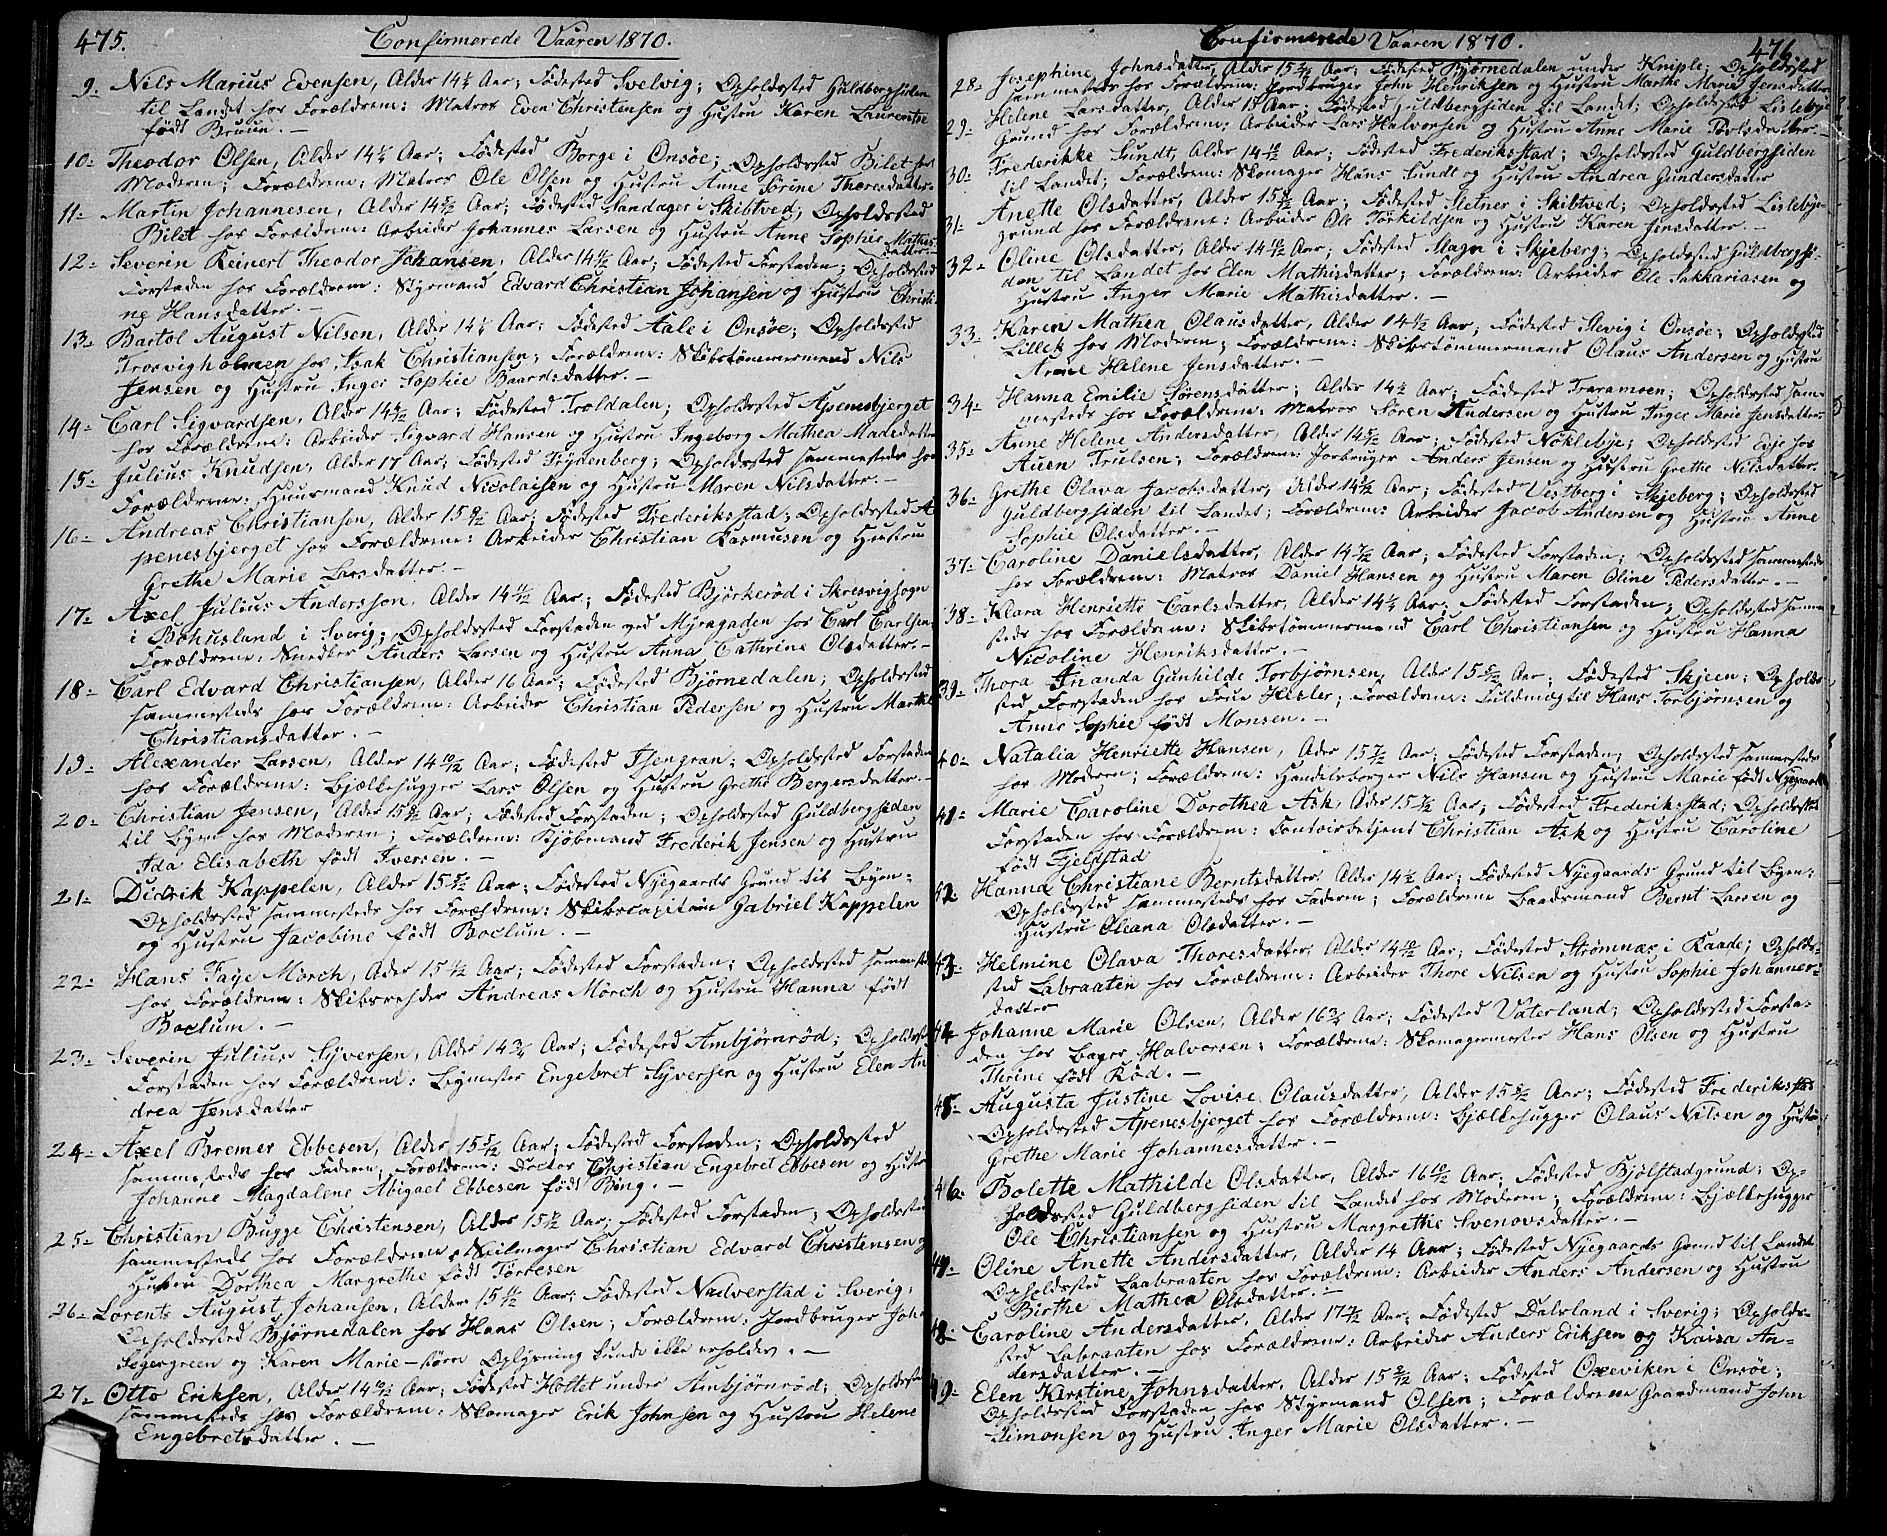 475.
Confirmerede Vaaren 1870.
9- Nils Marius Evensen, Alder 14 Aar; Fødested Svelvig; Opholdssted Guldbergsiden
til Landet hos Forældrene: Matros Even Christensen og Hustru Karen Laurentse
født Bruun. -
10- Theodor Olsen, Alder 14¼ Aar; Fødested Borge i Onsøe; Opholdssted Bilet hos
Moderen; Forældrene: Matros Ole Olsen og Hustru Anne Sørine Thoresdatter-
11- Martin Johannesen, Alder 14 Aar; Fødested Sandager i Skibtved; Opholdssted
Bilet hos Forældrene: Arbeider Johannes Larsen og Hustru Anne Sophie Mathis-
datter-
12- Severin Reinert Theodor Johansen, Alder 14½ Aar; Fødested Forstaden; Opholdssted
Forstaden hos Forældrene: Styrmand Edvard Christian Johansen og Hustru Christi-
ne Hansdatter. -
13- Bartol August Nilsen, Alder 14¼ Aar; Fødested Aale i Onsøe; Opholdssted
Trosvigholmen hos Isak Christiansen; Forældrene: Skibstømmermand Nils
Jensen og Hustru Inger Sophie Baardsdatter. -
14- Carl Sigvardsen, Alder 14 Aar; Fødested Troldalen; Opholdssted Apenesbjerget
hos Forældrene: Arbeider Sigvard Hansen og Hustru Ingeborg Mathea Madsdatter
15- Julius Knudsen, Alder 17 Aar; Fødested Frydenberg; Opholdssted sammesteds hos
Forældrene: Huusmand Knud Nicolaisen og Hustru Maren Nilsdatter. -
16- Andreas Christiansen, Alder 15 Aar; Fødested Frederiksstad; Opholdssted A-
penesbjerget hos Forældrene: Arbeider Christian Rasmusen og Hustru
Grethe Marie Larsdatter. -
17- Axel Julius Andersson, Alder 14 11/12 Aar; Fødested Björkerød i Skresvigsogn
i Bohusland i Sverig; Opholdssted Forstaden ved Myragaden hos Carl Carlsen.
Forældrene: Snedker Anders Larsen og Hustru Anna Cathrine Olsdatter. -
18- Carl Edvard Christiansen, Alder 16 Aar; Fødested Bjørnedalen; Opholdssted
sammesteds hos Forældrene: Arbeider Christian Pedersen og Hustru Marthe
Christiansdatter. -
19- Alexander Larsen, Alder 14 10/12 Aar; Fødested Thengran; Opholdssted Forstaden
hos Forældrene: Bjælkehugger Lars Olsen og Hustru Grethe Bergersdatter. -
20- Christian Jensen, Alder 15 Aar; Fødested Forstaden; Opholdssted Guldbergsiden
til Byen hos Moderen; Forældrene: Kjøbmand Frederik Jensen og Hustru
Ida Elisabeth født Iversen. -
21- Didrik Kappelen, Alder 15 Aar; Fødested Nyegaards Grund til Byen;
Opholdssted sammesteds hos Forældrene: Skibscapitain Gabriel Kappelen
og Hustru Jacobine født Boclum. -
22- Hans Faye Mörch, Alder 15 Aar; Fødested Forstaden; Opholdssted sammesteds
hos Forældrene: Skibsrehder Andreas Mörch og Hustru Hanna født
Boclum. -
23- Severin Julius Syversen, Alder 14¾ Aar; Fødested Ambjørnrød; Opholdssted
Forstaden hos Forældrene: Bygmester Engebret Syversen og Hustru Elen An
drea Jensdatter
24- Axel Bremer Ebbesen, Alder 15 Aar; Fødested Forstaden; Opholdssted
sammesteds hos Faderen; Forældrene: Doctor Christian Engebret Ebbesen og Hustru
Johanne Magdalene Abigael Ebbesen født Bing. -
25- Christian Bugge Christensen, Alder 15 Aar; Fødested Forstaden; Opholdssted
sammesteds hos Forældrene: Seilmager Christian Edvard Christensen og
Hustru Dorthea Margrethe født Törresen
26- Lorents August Johansen, Alder 15 Aar; Fødested Nadverstad i Sverig;
Opholdssted Bjørnedalen hos Hans Olsen; Forældrene: Jordbruger Joha
Segergreen og Karen Marie - større Oplysning kunde ikke erholdes. -
27- Otto Eriksen, Alder 14 10/12 Aar; Fødested Hottet under Ambjørnrød; Opholdssted
sammesteds hos Forældrene: Skomager Erik Johnsen og Hustru Helene
Engebretsdatter. -
Confirmerede Vaaren 1870.
476
28- Josephine Johnsdatter, Alder 15 Aar; Fødested Bjørnedalen under Kniple; Opholdssted
sammesteds hos Forældrene: Jordbruger John Henriksen og Hustru Marthe Marie Jensdatter
29- Helene Larsdatter, Alder 15 Aar; Fødested Guldbergsiden til Landet; Opholdssted Lislebye
Grund hos Forældrene: Arbeider Lars Halvorsen og Hustru Anne Marie Povlsdatter. -
30- Frederikke Sundt, Alder 14 10/12 Aar; Fødested Frederiksstad; Opholdssted Guldbergsiden
til Landet; Forældrene: Skomager Hans Sundt og Hustru Andrea Gundersdatter
31- Anette Olsdatter, Alder 15 Aar; Fødested Sletner i Skibtved; Opholdssted Lislebye-
grund hos Forældrene: Arbeider Ole Torkildsen og Hustru Karen Jensdatter. -
32- Oline Olsdatter, Alder 14 11/12 Aar; Fødested Magn i Skjeberg; Opholdssted Guldbergsi-
den til Landet hos Elen Mathisdatter; Forældrene: Arbeider Ole Sakkariasen og
Hustru Inger Marie Mathisdatter. -
33- Karen Mathea Olausdatter, Alder 14½ Aar; Fødested Slevig i Onsøe; Opholdssted
Lillek hos Moderen; Forældrene: Skibstømmermand Olaus Andersen og Hustru
Arne Helene Jensdatter. -
34- Hanna Emilie Sørensdatter; Alder 14 Aar; Fødested Traramoen; Opholdssted sam-
mesteds hos Forældrene: Matros Søren Andersen og Hustru Inger Marie Jensdatter
35- Anne Helene Andersdatter, Alder 14 Aar; Fødested Nøklebye; Opholdssted Eje hos
Auen Trulsen; Forældrene: Jorbruger Anders Jensen og Hustru Grethe Nilsdatter.
36- Grethe Olava Jacobsdatter, Alder 14 Aar; Fødested Vestberg i Skjeberg; Opholdssted
Guldbergsiden til Landet; Forældrene: Arbeider Jacob Andersen og Hustru Anne
Sophie Olsdatter. -
37- Caroline Danielsdatter, Alder 14 Aar; Fødested Forstaden; Opholdssted sammesteds
hos Forældrene: Matros Daniel Hansen og Hustru Maren Oline Pedersdatter. -
38- Klara Henriette Carlsdatter, Alder 14 Aar; Fødested Forstaden; Opholdssted samme
steds hos Forældrene: Skibstømmermand Carl Christiansen og Hustru Hanna
Nicoline Henriksdatter. -
39- Thora Ananda Gunhilde Torbjørnsen, Alder 15 Aar; Fødested Skjeen; Opholds-
sted Forstaden hos Frue Kisler; Forældrene: Fuldmægtig Hans Torbjørnsen og
Anne Sophie født Monsen. -
40- Natalia Henriette Hansen, Alder 15 Aar; Fødested Forstaden; Opholdssted sammesteds
hos Moderen; Forældrene: Handelsborger Nils Hansen og Hustru Marie født Nygaard
41- Marie Caroline Dorothea Ask, Alder 15 Aar; Fødested Frederiksstad; Opholdssted
Forstaden hos Forældrene: Contoirbetjent Christian Ask og Hustru Caroline
født Fjeldstad
42- Hanna Christiane Berntsdatter, Alder 14 Aar; Fødested Nyegaards Grund til Byen;
Opholdssted sammesteds hos Faderen; Forældrene Baadsmand Bernt Larsen og
Hustru Oleana Olsdatter. -
43- Helmine Olava Thoresdatter, Alder 14 10/12 Aar; Fødested Strømnæs i Raade; Opholds-
sted Labraaten hos Forældrene: Arbeider Thore Nilsen og Hustru Sophie Johannes-
datter
44- Johanne Marie Olsen, Alder 16¾ Aar; Fødested Vaterland; Opholdssted Forsta-
den hos Bager Halvorsen; Forældrene: Skomagermester Hans Olsen og Hustru
Thrine født Rød. -
45- Augusta Justine Lovise Olausdatter, Alder 15 Aar; Fødested Frederiksstad
Opholdssted Apenesbjerget hos Forældrene: Bjælkehugger Olaus Nilsen og Hustru
Grethe Marie Johannesdatter. -
46- Bolette Mathilde Olsdatter, Alder 16 10/12 Aar; Fødested Kjølstadgrund; Op-
holdssted Guldbergsiden til Landet hos Moderen; Forældrene: Bjælkehugger
Ole Christiansen og Hustru Margrethe Svenovsdatter. -
47- Oline Anette Andersdatter, Alder 14 Aar; Fødested Nyegaards Grund til Landet
Opholdssted Laabraaten hos Forældrene: Arbeider Anders Andersen og Hustru
Birthe Mathea Olsdatter. -
48- Caroline Andersdatter, Alder 17 Aar; Fødested Dalsland i Sverig; Opholds-
sted Labraaten hos Forældrene: Arbeider Anders Eriksen og Kaisa An-
dersdatter. -
49- Elen Kirstine Johnsdatter, Alder 15 Aar; Fødested Oxeviken i Onsøe;
Opholdssted Forstaden hos Styrmand Olsen; Forældrene Gaardmand John
Simonsen og Hustru Inger Marie Olsdatter. -